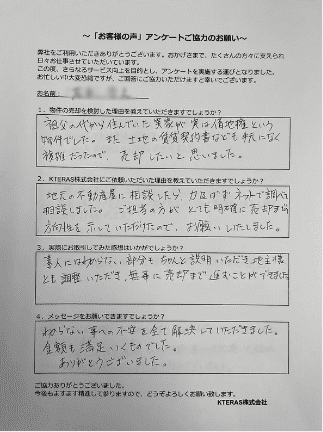 ～「お客様の声」アンケートご協力のお願い～
弊社をご利用いただきありがとうございます。おかげさまで、たくさんの方々に支えられ
日々お仕事させていただいています。
この度、さらなるサービス向上を目的とし、アンケートを実施する運びとなりました。
お忙しい中大変恐縮ですが、ご回答にご協力いただけますと幸いでございます。
お名前：
1．物件の売却を検討した理由を教えていただきますでしょうか？
祖父の代から住んでいた実家が実は借地権という
物件でした。また土地の賃貸契約書なども手元になく
複雑だったので、売却したいと思いました。
2．KTERAS株式会社にご依頼いただいた理由を教えていただけますでしょうか？
地元の不動産屋に相談したら、力及ばずネットで調べ
相談しました。ご担当の方が とても明確に売却まで
方向性を示していただけたので、お願いいたしました。
3．実際にお取引してみた感想はいかがでしょうか？
素人にはわからない部分もちゃんと説明いただき地主様
とも調整いただき、無事に売却まで進むことができました
4．メッセージをお願いできますでしょうか？
わからない事への不安を全て解決していただきました。
金額も満足いくものでした。
ありがとうございました。
ご協力ありがとうございました。
今後もますます精進して参りますので、どうぞよろしくお願い致します。
KTERAS株式会社